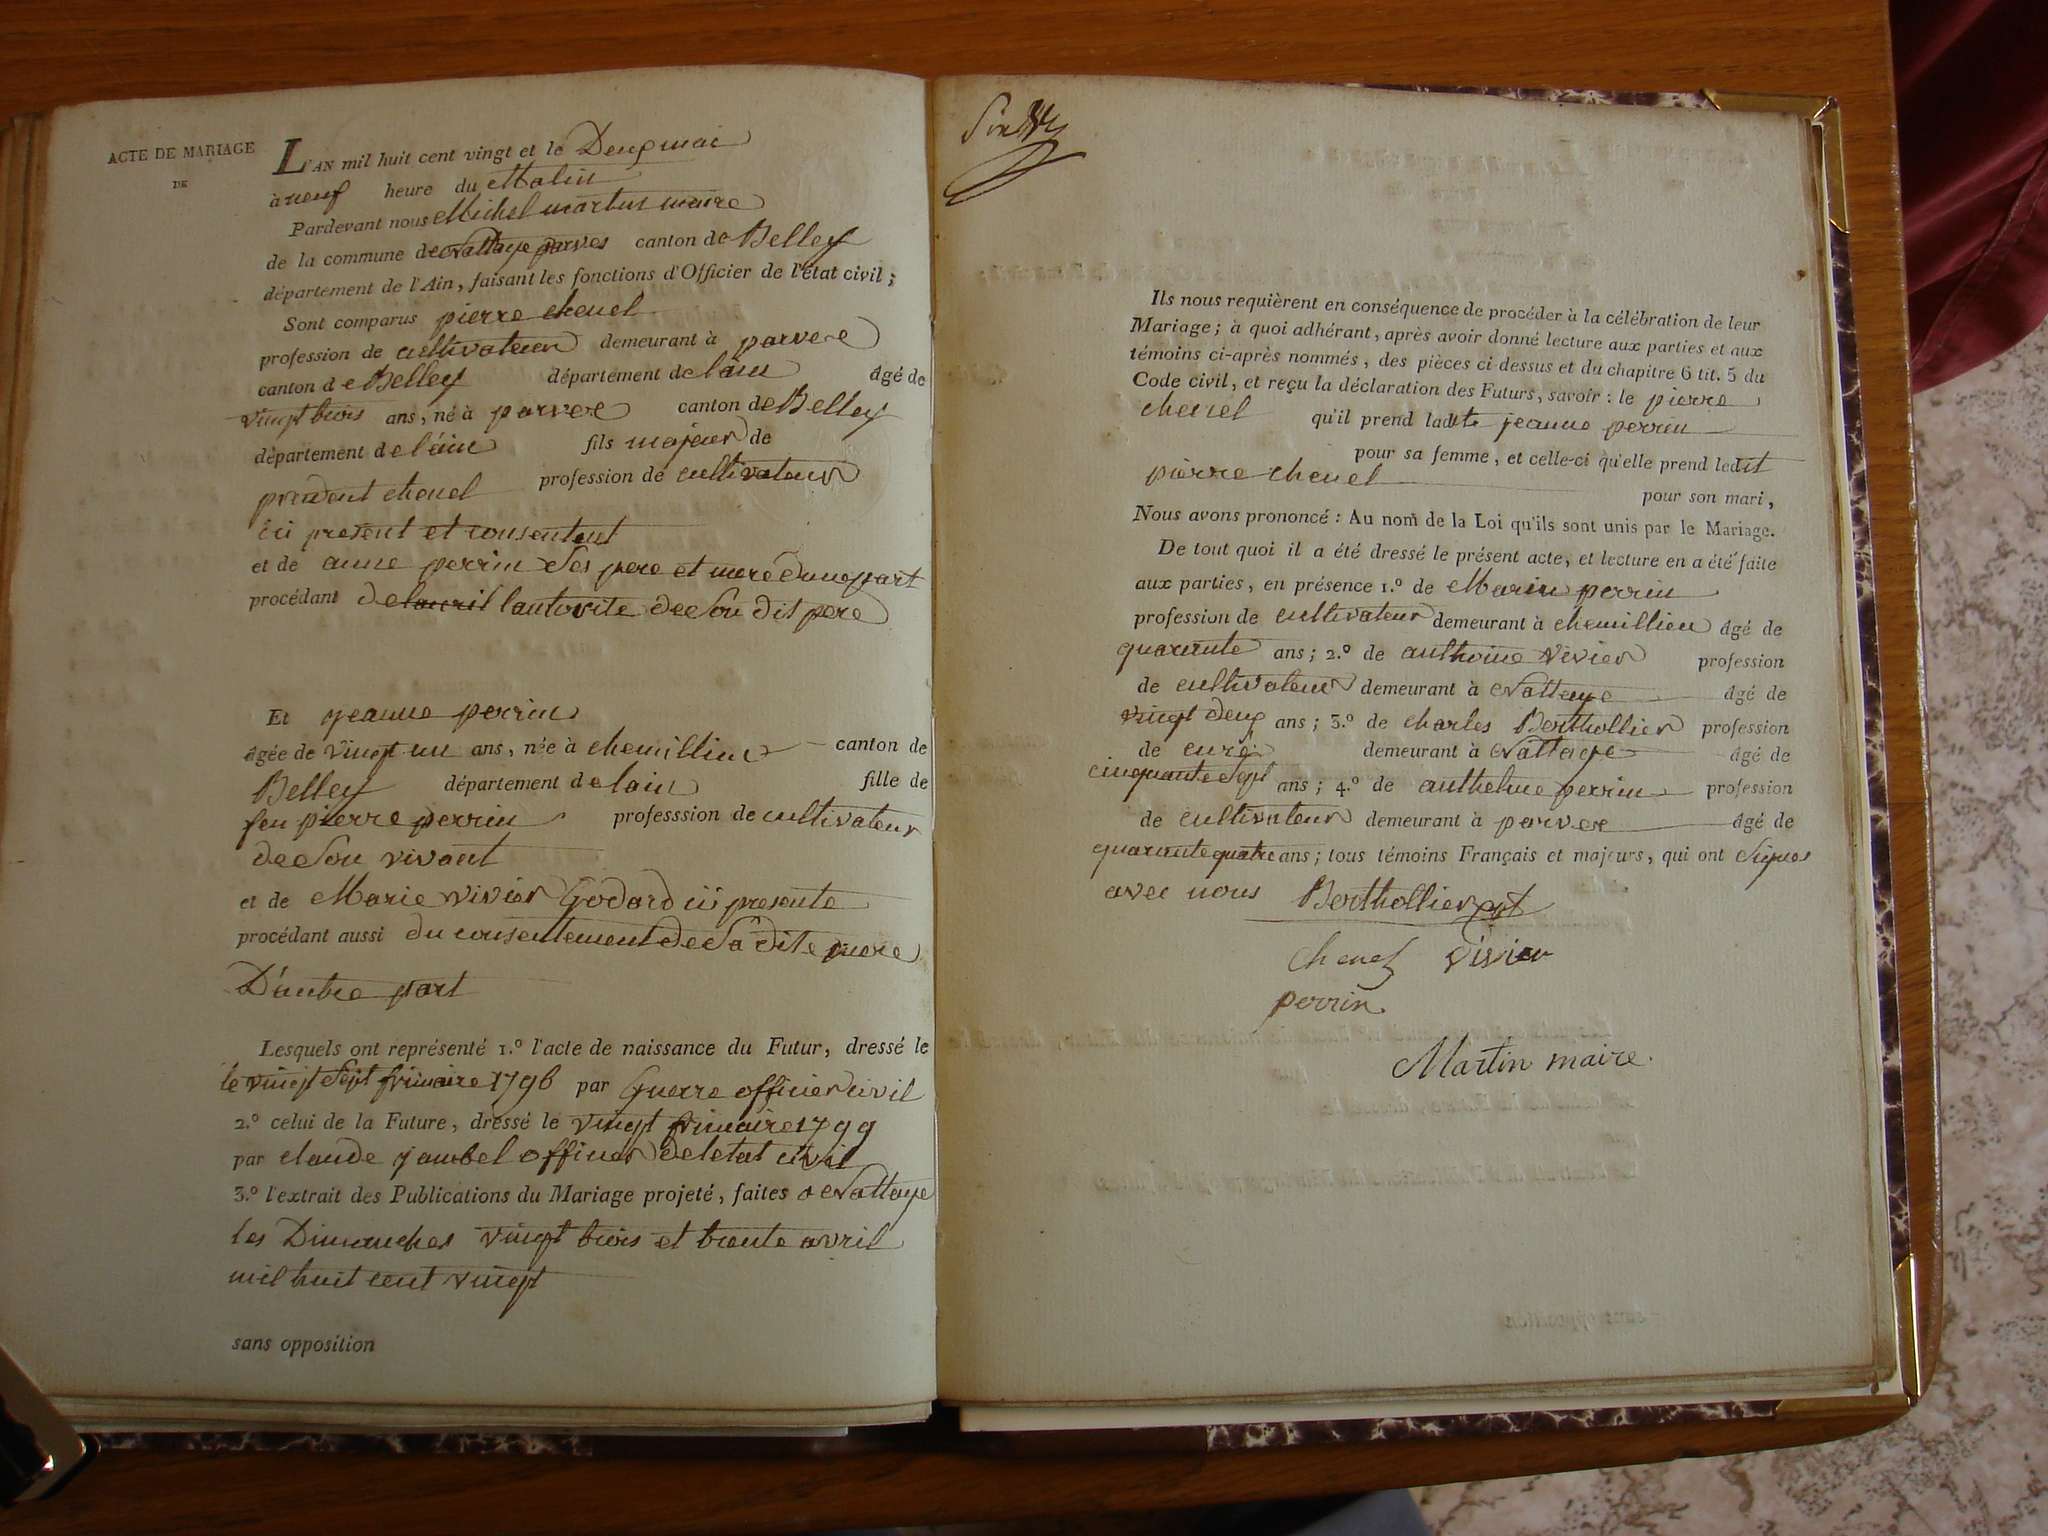 ACTE DE MARIAGE
DE
L'AN mil huit cent vingt et le Deux mai
à neuf heure du Matin
Pardevant nous Michel martin maire
de la commune de Nattage parves canton de Belley
département de l'Ain, faisant les fonctions d'Officier de l'état civil;
Sont comparus pierre chenel
profession de cultivateur demeurant à parvese
canton de Belley département de lain âgé de
vingt trois ans, né à parvese canton de Belley
département de l'ain fils majeur de
prudent chenel profession de cultivateur
ici present et consentent
et de anne perrin Ses pere et mere d'une part
procédant de lautorite de Son dit pere
Et jeanne perrin
âgée de vingt un ans, née à chemillieu canton de
Belley département de lain fille de
feu pierre perrin professsion de cultivateur
de Son vivant
et de Marie vivier Godard ici presente
procédant aussi du consentement de Sa dite mere
D'autre part
Lesquels ont représenté 1.º l'acte de naissance du Futur, dressé le
le vingt Sept frimaire 1796 par Guerre officier civil
2.º celui de la Future, dressé le vingt frimaire 1799
par claude jambel officier de letat civil
3.º l'extrait des Publications du Mariage projeté, faites a Nattage
les Dimanches vingt trois et trente avril
mil huit cent vingt
sans opposition
Ils nous requièrent en conséquence de procéder à la célébration de leur
Mariage; à quoi adhérant, après avoir donné lecture aux parties et aux
témoins ci-après nommés, des pièces ci-dessus et du chapitre 6 tit. 5 du
Code civil, et reçu la déclaration des Futurs, savoir: le pierre
chenel qu'il prend ladite jeanne perrin
pour sa femme, et celle-ci qu'elle prend ledit
pierre chenel
pour son mari,
Nous avons prononcé: Au nom de la Loi qu'ils sont unis par le Mariage.
De tout quoi il a été dressé le présent acte, et lecture en a été faite
aux parties, en présence 1.º de Marin perrin
profession de cultivateur demeurant à chemillieu âgé de
quarante ans; 2.º de anthoine vivier profession
de cultivateur demeurant à Nattage âgé de
vingt deux ans; 3.º de charles Berthollier profession
de curé demeurant à Nattage âgé de
cinquante Sept ans; 4.º de anthelme perrin profession
de cultivateur demeurant à parvese âgé de
quarante quatre ans; tous témoins Français et majeurs, qui ont Signes
avec nous Berthollier
chenel vivier
perrin
Martin maire.